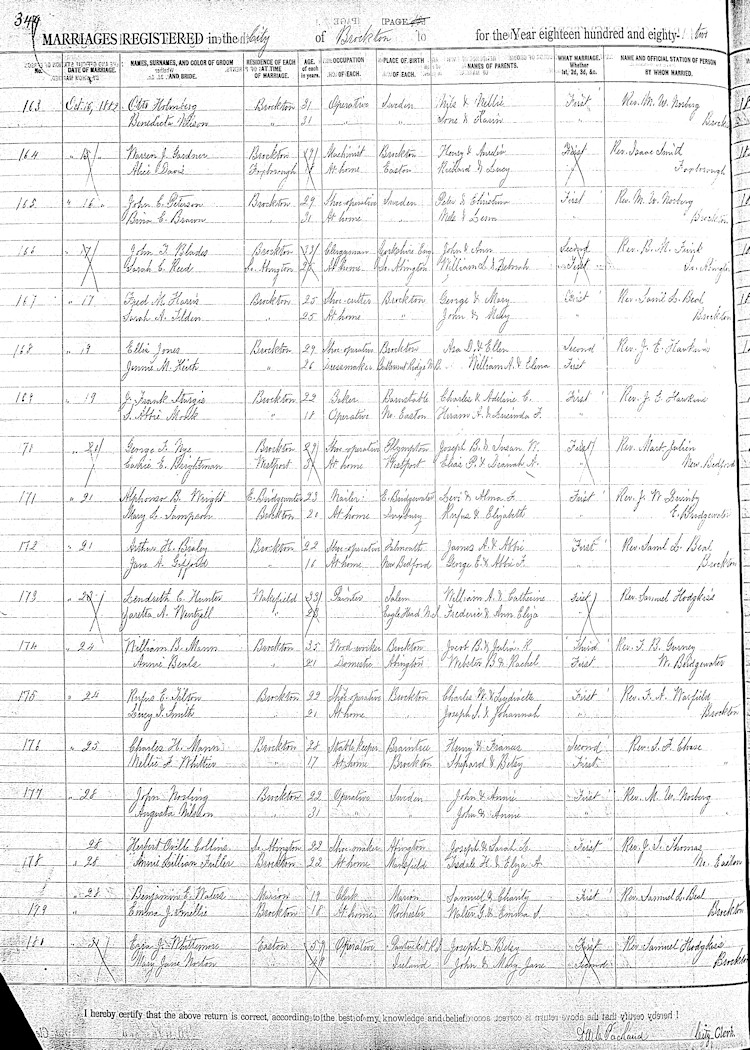 349
PAGE
MARRIAGES REGISTERED in the City of Brockton for the Year eighteen hundred and eighty-two
No. DATE OF MARRIAGE. NAMES, SURNAMES, AND COLOR OF GROOM AND BRIDE. RESIDENCE OF EACH AT TIME OF MARRIAGE. AGE of each in years. OCCUPATION OF EACH. PLACE OF BIRTH OF EACH. NAMES OF PARENTS. WHAT MARRIAGE. Whether 1st, 2d, 3d, &c. NAME AND OFFICIAL STATION OF PERSON BY WHOM MARRIED.
163 Oct 16, 1882 Otto Holmberg Brockton 31 Operative Sweden Nils & Nellie First Rev. M. W. Norberg
Benedicta Nilson " 31 " " " Brockton
164 " " Warren J. Gardner Brockton Machinist Brockton Henry & Aurelia First Rev. Isaac Smith
Alice Davis Foxborough At home Easton Richard & Lucy " Foxborough
165 " 16 " John E. Peterson Brockton 29 Shoe operative Sweden Peter & Christina First Rev. M. W. Norberg
E. Brawn " 21 At home " Nels & " Brockton
166 " 17 John F. Blades Brockton 33 Clergyman Yorkshire Eng. John & Ann Second Rev. B. M.
Sarah E. Reed So. Abington At home So. Abington William L. & Deborah First So. Abington
167 " 17 Fred M. Harris Brockton 25 Shoe cutter Brockton George & Mary First Rev. Saml L. Beal
Sarah A. Tilden " 25 At home " John & Mary " Brockton
168 " 19 Ellis Jones Brockton 29 Shoe operative Brockton Asa D. & Ellen Second Rev. J. E. Hawkins
Jennie M. Keith " 26 Dressmaker William A. & Elena First "
169 " 19 J. Frank Sturgis Brockton 22 Baker Barnstable Charles & Adeline C. First Rev. J. E. Hawkins
S. Abbie Monk " 18 Operative No. Easton Hiram A. & Lucinda F. " "
70 " 21 George F. Nye Brockton 29 Shoe operative Plympton Joseph B. & Susan W. First Rev. Mart Julien
E. Brightman Westport At home Westport Elias P. & Hannah A. " New Bedford
171 " 21 Alphonso B. Wright E. Bridgewater 23 Nailer E. Bridgewater Levi & Alma F. First Rev. J. W.
Mary L. Sampson Brockton 21 At home Rufus & Elizabeth " E. Bridgewater
172 " 21 Arthur H. Braley Brockton 22 Shoe operative Falmouth James A. & Abbie First Rev. Saml L. Beal
Jane A. Gifford " 16 At home New Bedford George E. & Abbie F. " Brockton
173 " 23 E. Hunter Wakefield 33 Painter Salem William A. & Catherine First Rev. Samuel Hodgkiss
A. Wentzell " 28 Eagle Head N.S. Frederic & Ann Eliza " "
174 " 24 William B. Mann Brockton 35 Wood worker Brockton & Julia R. Third Rev. F. B. Gurney
Annie Beals " 21 Domestic Abington Webster B. & Rachel First W. Bridgewater
175 " 24 Rufus E. Tilton Brockton 22 Shoe operative Brockton Charles W. & First Rev. F. A. Warfield
Lucy F. Smith " 21 At home " Joseph S. & Johannah " Brockton
176 " 25 Charles H. Mann Brockton 28 Stable keeper Braintree Henry & Frances Second Rev. S. F. Chase
Nellie F. Whittier " 17 At home Brockton Shepard & Betsy First "
177 " 28 John Brockton 22 Operative Sweden John & Annie First Rev. M. W. Norberg
Augusta Nilson " 31 " " John & Annie " "
28 Herbert Orville Collins So. Abington 22 Shoe maker Abington Joseph & Sarah L. First Rev. J. S. Thomas
178 " 28 Annie Lillian Fuller Brockton 22 At home Mansfield Tisdale H. & Eliza A. " No. Easton
" 28 Benjamin E. Waters Marion 19 Clerk Marion Samuel & Charity First Rev. Samuel L. Beal
179 " Emma J. Brockton 18 At home Rochester Walter G. & Emma S. " Brockton
180 " Ezra J. Whittemore Easton 59 Operative Pawtucket R.I. Joseph & Betsy First Rev. Samuel Hodgkiss
Mary Jane Norton " 48 Ireland John & Mary Jane Second Brockton
I hereby certify that the above return is correct, according to the best of my knowledge and belief.
De W. C. Packard City Clerk.